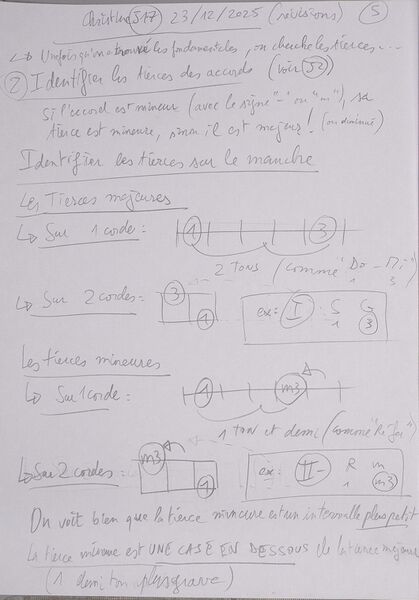 Christian J17 23/12/2025 (révisions) 5
↳ Une fois qu'on a trouvé les fondamentales, on cherche les tierces...
2 Identifier les tierces des accords (voir J2)
Si l'accord est mineur (avec le signe "-" ou "m"), sa
tierce est mineure, sinon il est majeur! (ou diminué)
Identifier les tierces sur le manche
Les Tierces majeures
↳ Sur 1 corde : 1 3
2 tons (comme "Do - Mi")
1 3
↳ Sur 2 cordes = 3 1
ex: I : S G
1 3
Les tierces mineures
↳ Sur 1 corde : 1 m3
1 ton et demi (comme "Ré Fa")
↳ Sur 2 cordes : m3 1
ex : II- R m
1 m3
On voit bien que la tierce mineure est un intervalle plus petit
La tierce mineure est UNE CASE EN DESSOUS de la tierce majeure
(1 demi ton plus grave)